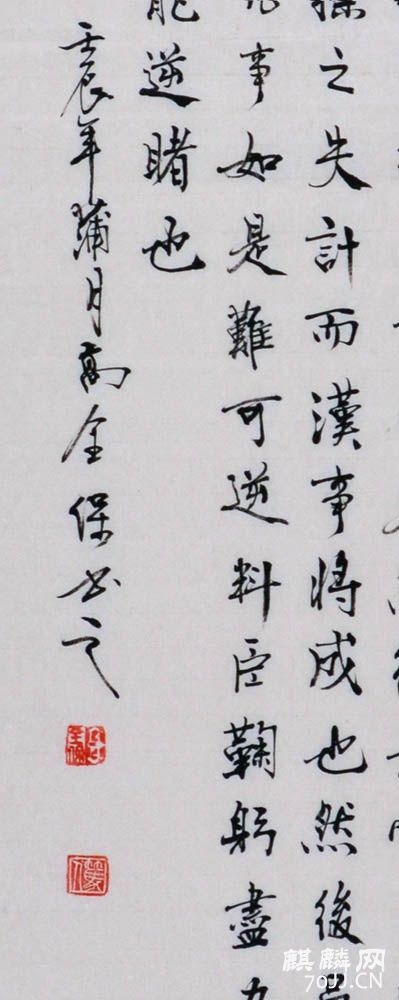 操之失計而漢事將成也然後
凡事如是難可逆料臣鞠躬盡力
能逆睹也
壬辰年蒲月高全保书之
麒麟网
70JJ.CN